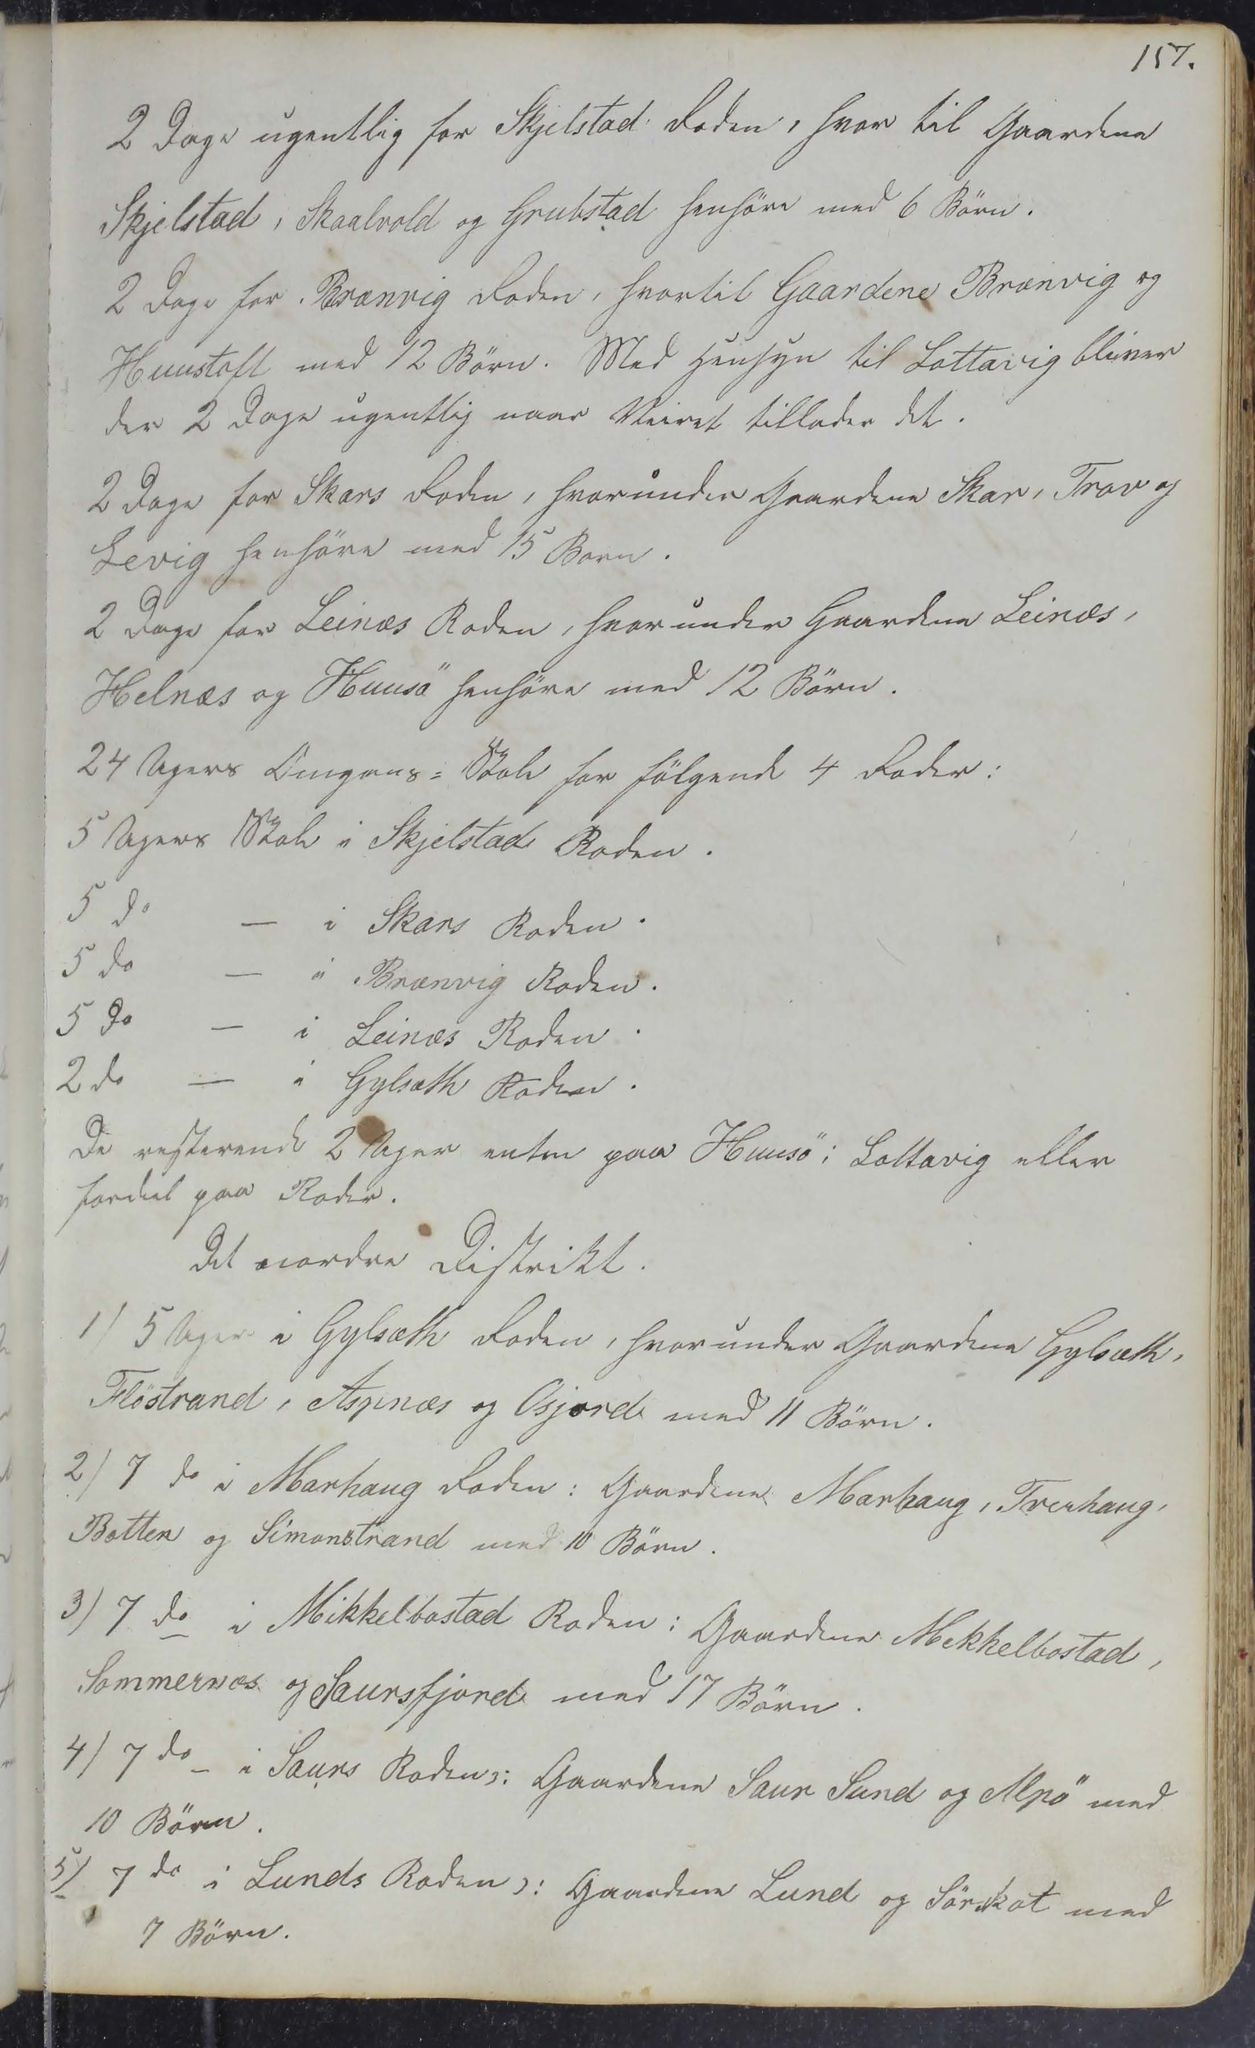 157.
2 Dage ugentlig for Skjelstad Roden, hvor til Gaardene
Skjelstad, Skaalvold og Grubstad henhöre med 6 Börn.
2 Dage for Brænvig Roden, hvortil Gaardene Brænvig og
Huustoft med 12 Börn. Med Hensyn til Lottavig bliver
der 2 Dage ugentlig naar Veiret tillader det.
2 Dage for Skars Roden, hvorunder Gaardene Skar, Trav og
Levig henhöre med 15 Born.
2 Dage for Leinæs Roden, hvorunder Gaardene Leinæs,
Helnæs og Huusö henhöre med 12 Börn.
24 Ugers Omgans=Skole for fölgende 4 Roder:
5 Ugers Skole i Skjelstad Roden.
5 do — i Skars Roden.
5 do — i Brænvig Roden.
5 do — i Leinæs Roden.
2 do — i Gylsæth Roden.
De resterende 2 Uger enten paa Huusö i Lottavig eller
fordeel paa Roder.
Det nordre Distrikt.
1) 5 Uger i Gylsæth Roden, hvorunder Gaardene Gylsæth,
Flöstrand, Aspnæs og Osjord med 11 Börn.
2) 7 do i Marhaug Roden: Gaardene Marhaug, Trerhaug,
Botten og Simonstrand med 10 Börn.
3) 7 do i Mikkelbostad Roden: Gaardene Mekkelbostad,
Sommernæs og Saursfjord med 17 Börn.
4) 7 do — i Saurs Roden: Gaardene Saur Sund og Alpö med
10 Börn.
5) 7 do i Lunds Roden: Gaardene Lund og Sörskot med
7 Börn.